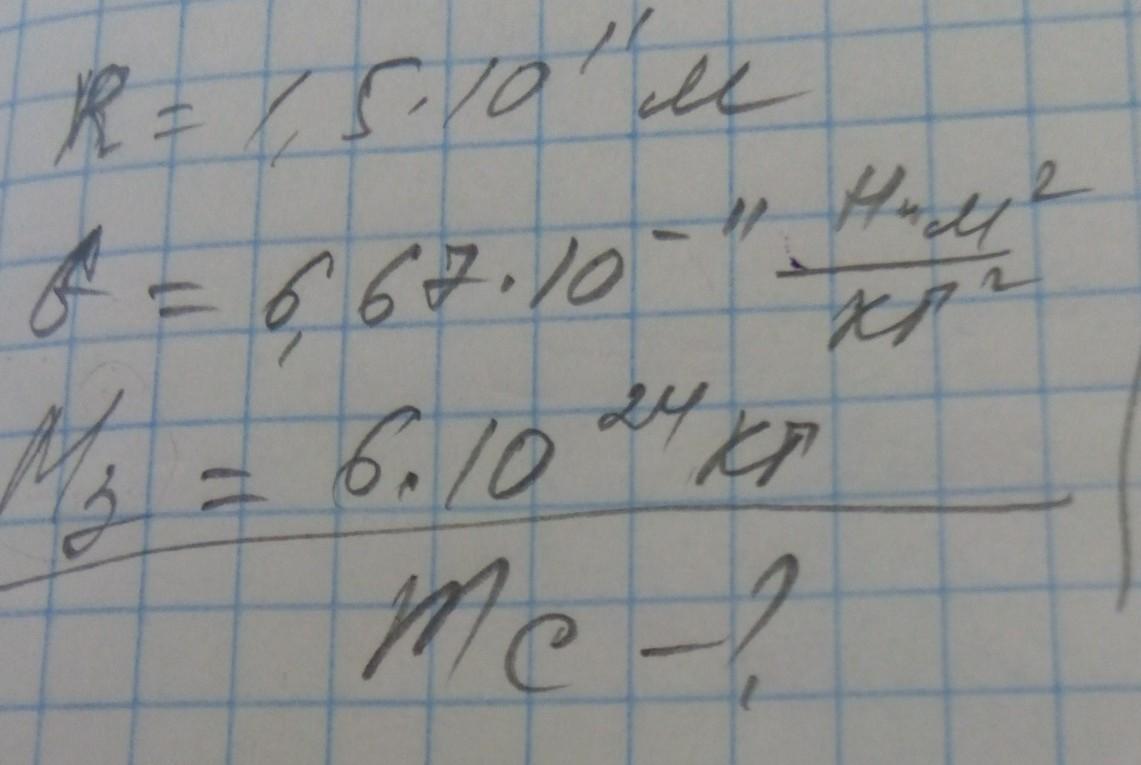 R = 1,5·10¹¹ м
G = 6,67·10⁻¹¹ Н·м²/кг²
M₃ = 6·10²⁴ кг
mc - ?